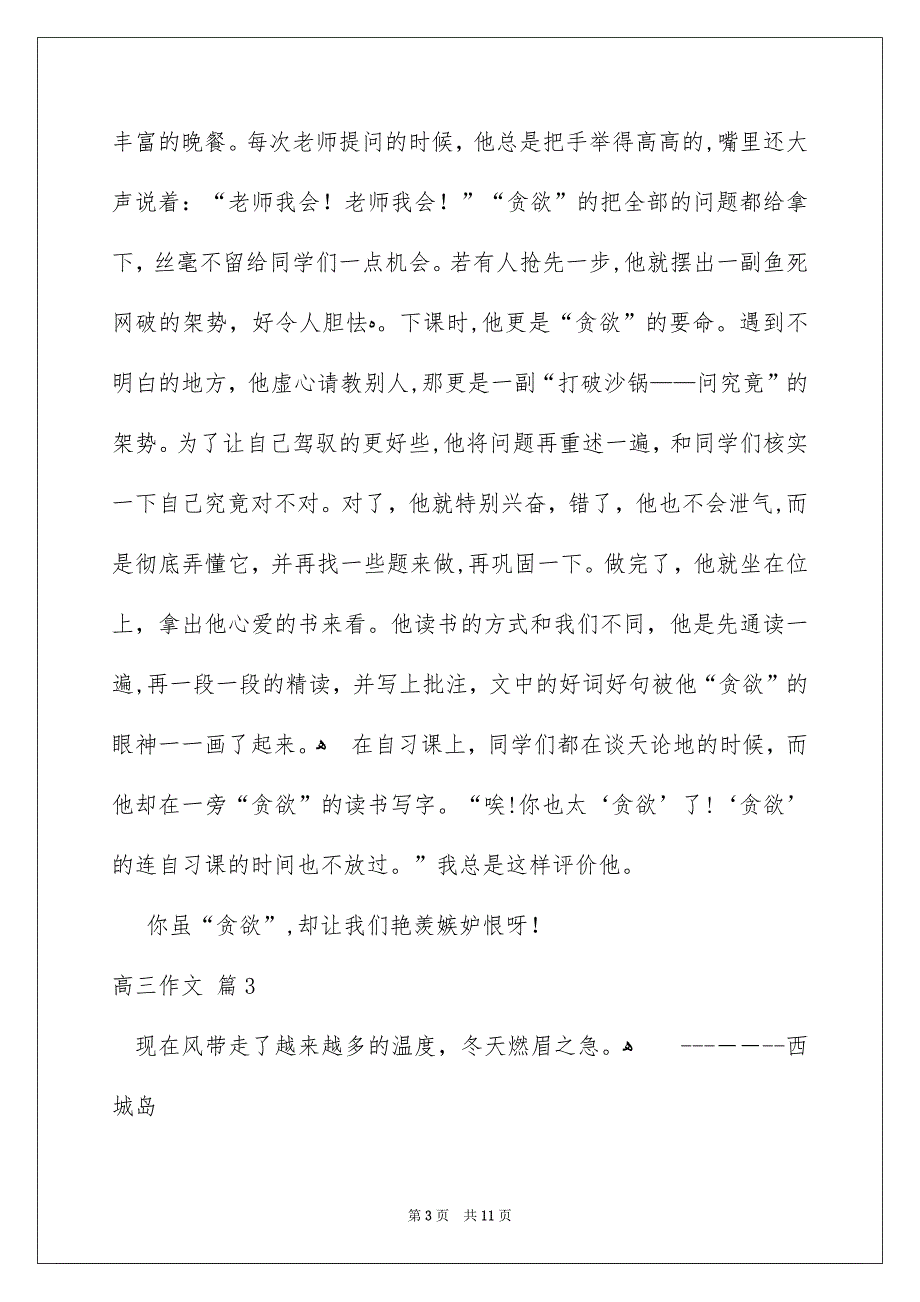 丰富的晚餐。每次老师提问的时候，他总是把手举得高高的,嘴里还大
声说着：“老师我会！老师我会！”“贪欲”的把全部的问题都给拿
下，丝毫不留给同学们一点机会。若有人抢先一步,他就摆出一副鱼死
网破的架势，好令人胆怯ﻩ。下课时,他更是“贪欲”的要命。遇到不
明白的地方，他虚心请教别人,那更是一副“打破沙锅——问究竟”的
架势。为了让自己驾驭的更好些,他将问题再重述一遍，和同学们核实
一下自己究竟对不对。对了，他就特别兴奋，错了，他也不会泄气,而
是彻底弄懂它，并再找一些题来做,再巩固一下。做完了，他就坐在位
上，拿出他心爱的书来看。他读书的方式和我们不同，他是先通读一
遍,再一段一段的精读，并写上批注，文中的好词好句被他“贪欲”的
眼神一一画了起来。ﻫ 在自习课上，同学们都在谈天论地的时候，而
他却在一旁“贪欲”的读书写字。“唉!你也太‘贪欲’了!‘贪欲’
的连自习课的时间也不放过。”我总是这样评价他。
你虽“贪欲”,却让我们艳羡嫉妒恨呀！
高三作文 篇3
现在风带走了越来越多的温度，冬天燃眉之急。ﻫ ---－－--西
城岛
第 3 页 共 11 页